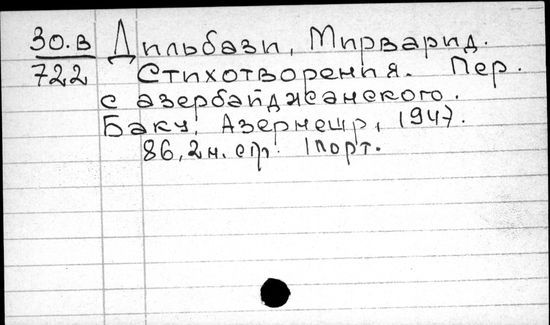 30.В Дильбази, Мирварид.
722 Стихотворения. Пер.
с азербайджанского.
Баку, Азернешр, 1947.
86, 2 н. стр. 1 порт.